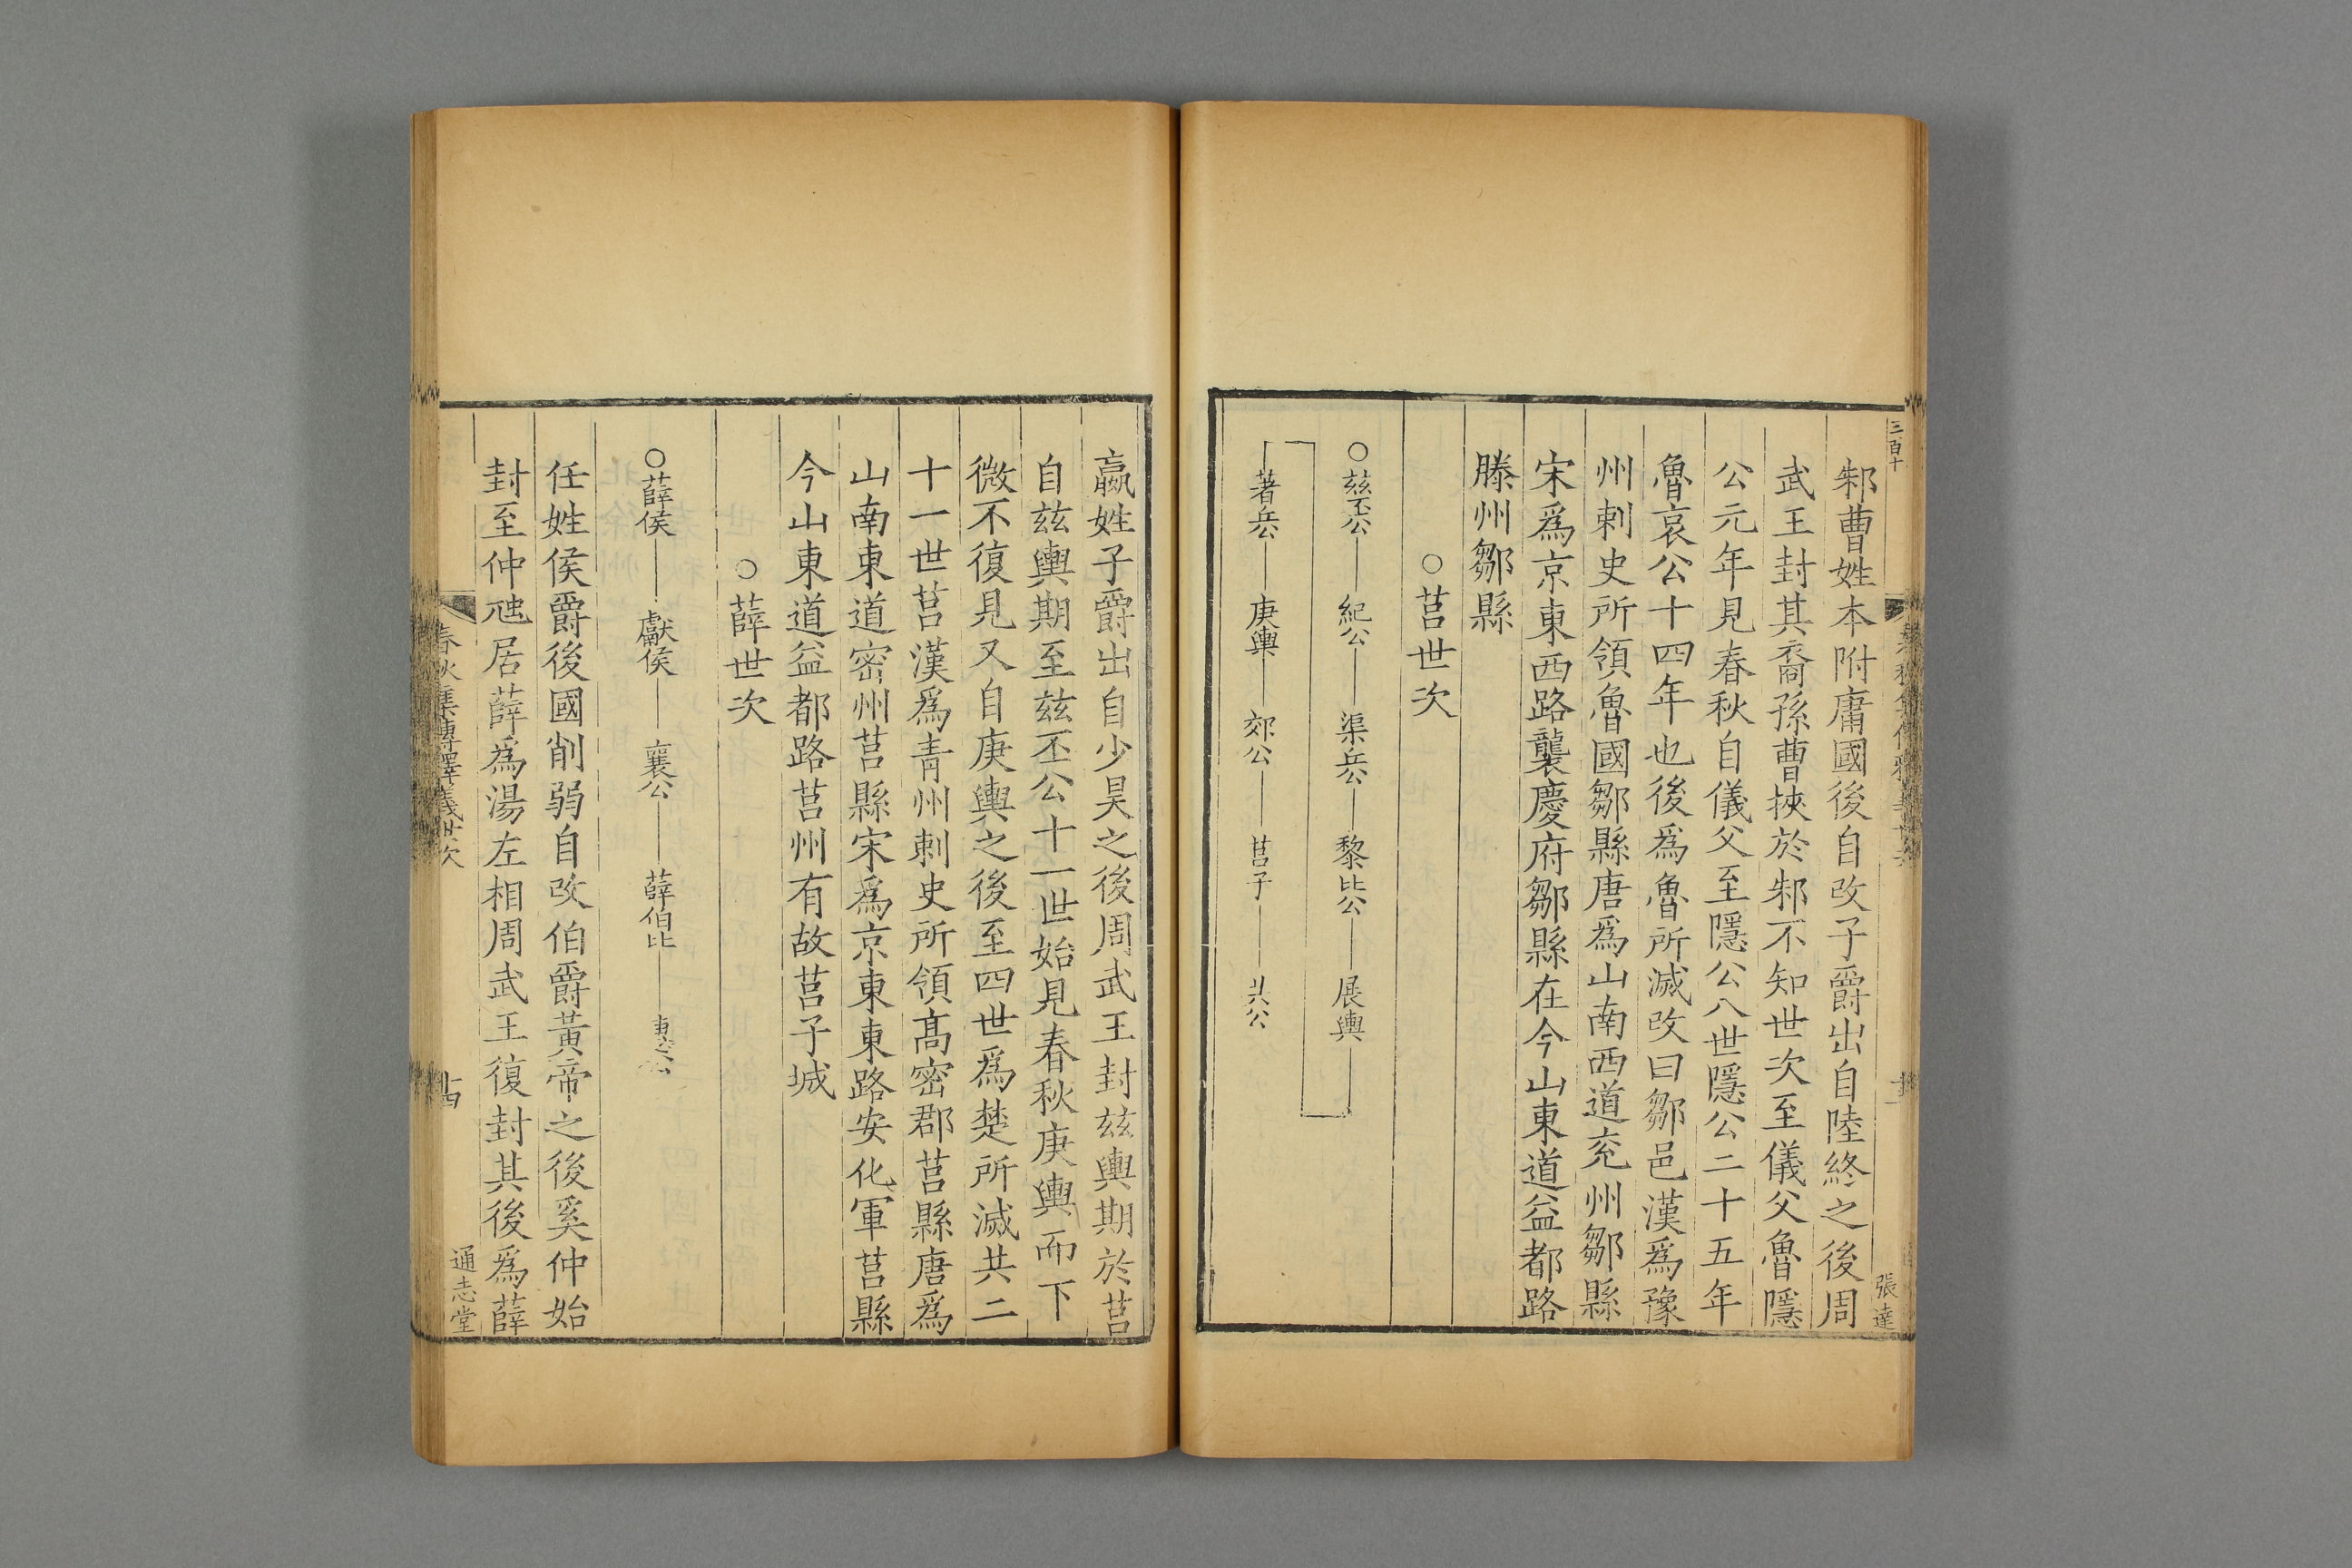 三百十
張達
邾曹姓本附庸國後自改子爵出自陸終之後周
武王封其裔孫曹挾於邾不知世次至儀父魯隱
公元年見春秋自儀父至隱公八世隱公二十五年
魯哀公十四年也後爲魯所滅改曰鄒邑漢爲豫
州刺史所領魯國鄒縣唐爲山南西道兖州鄒縣
宋爲京東西路襲慶府鄒縣在今山東道益都路
滕州鄒縣
○莒世次
○兹丕公 紀公 渠丘公 黎比公 展輿
著丘公 庚輿 郊公 莒子 共公
嬴姓子爵出自少昊之後周武王封兹輿期於莒
自兹輿期至兹丕公十一世始見春秋庚輿而下
微不復見又自庚輿之後至四世爲楚所滅共二
十一世莒漢爲青州刺史所領髙密郡莒縣唐爲
山南東道密州莒縣宋爲京東東路安化軍莒縣
今山東道益都路莒州有故莒子城
○薛世次
○薛侯 獻侯 襄公 薛伯比 惠公
任姓侯爵後國削弱自改伯爵黃帝之後奚仲始
封至仲虺居薛爲湯左相周武王復封其後爲薛
春秋集傳釋義世次
十四
通志堂